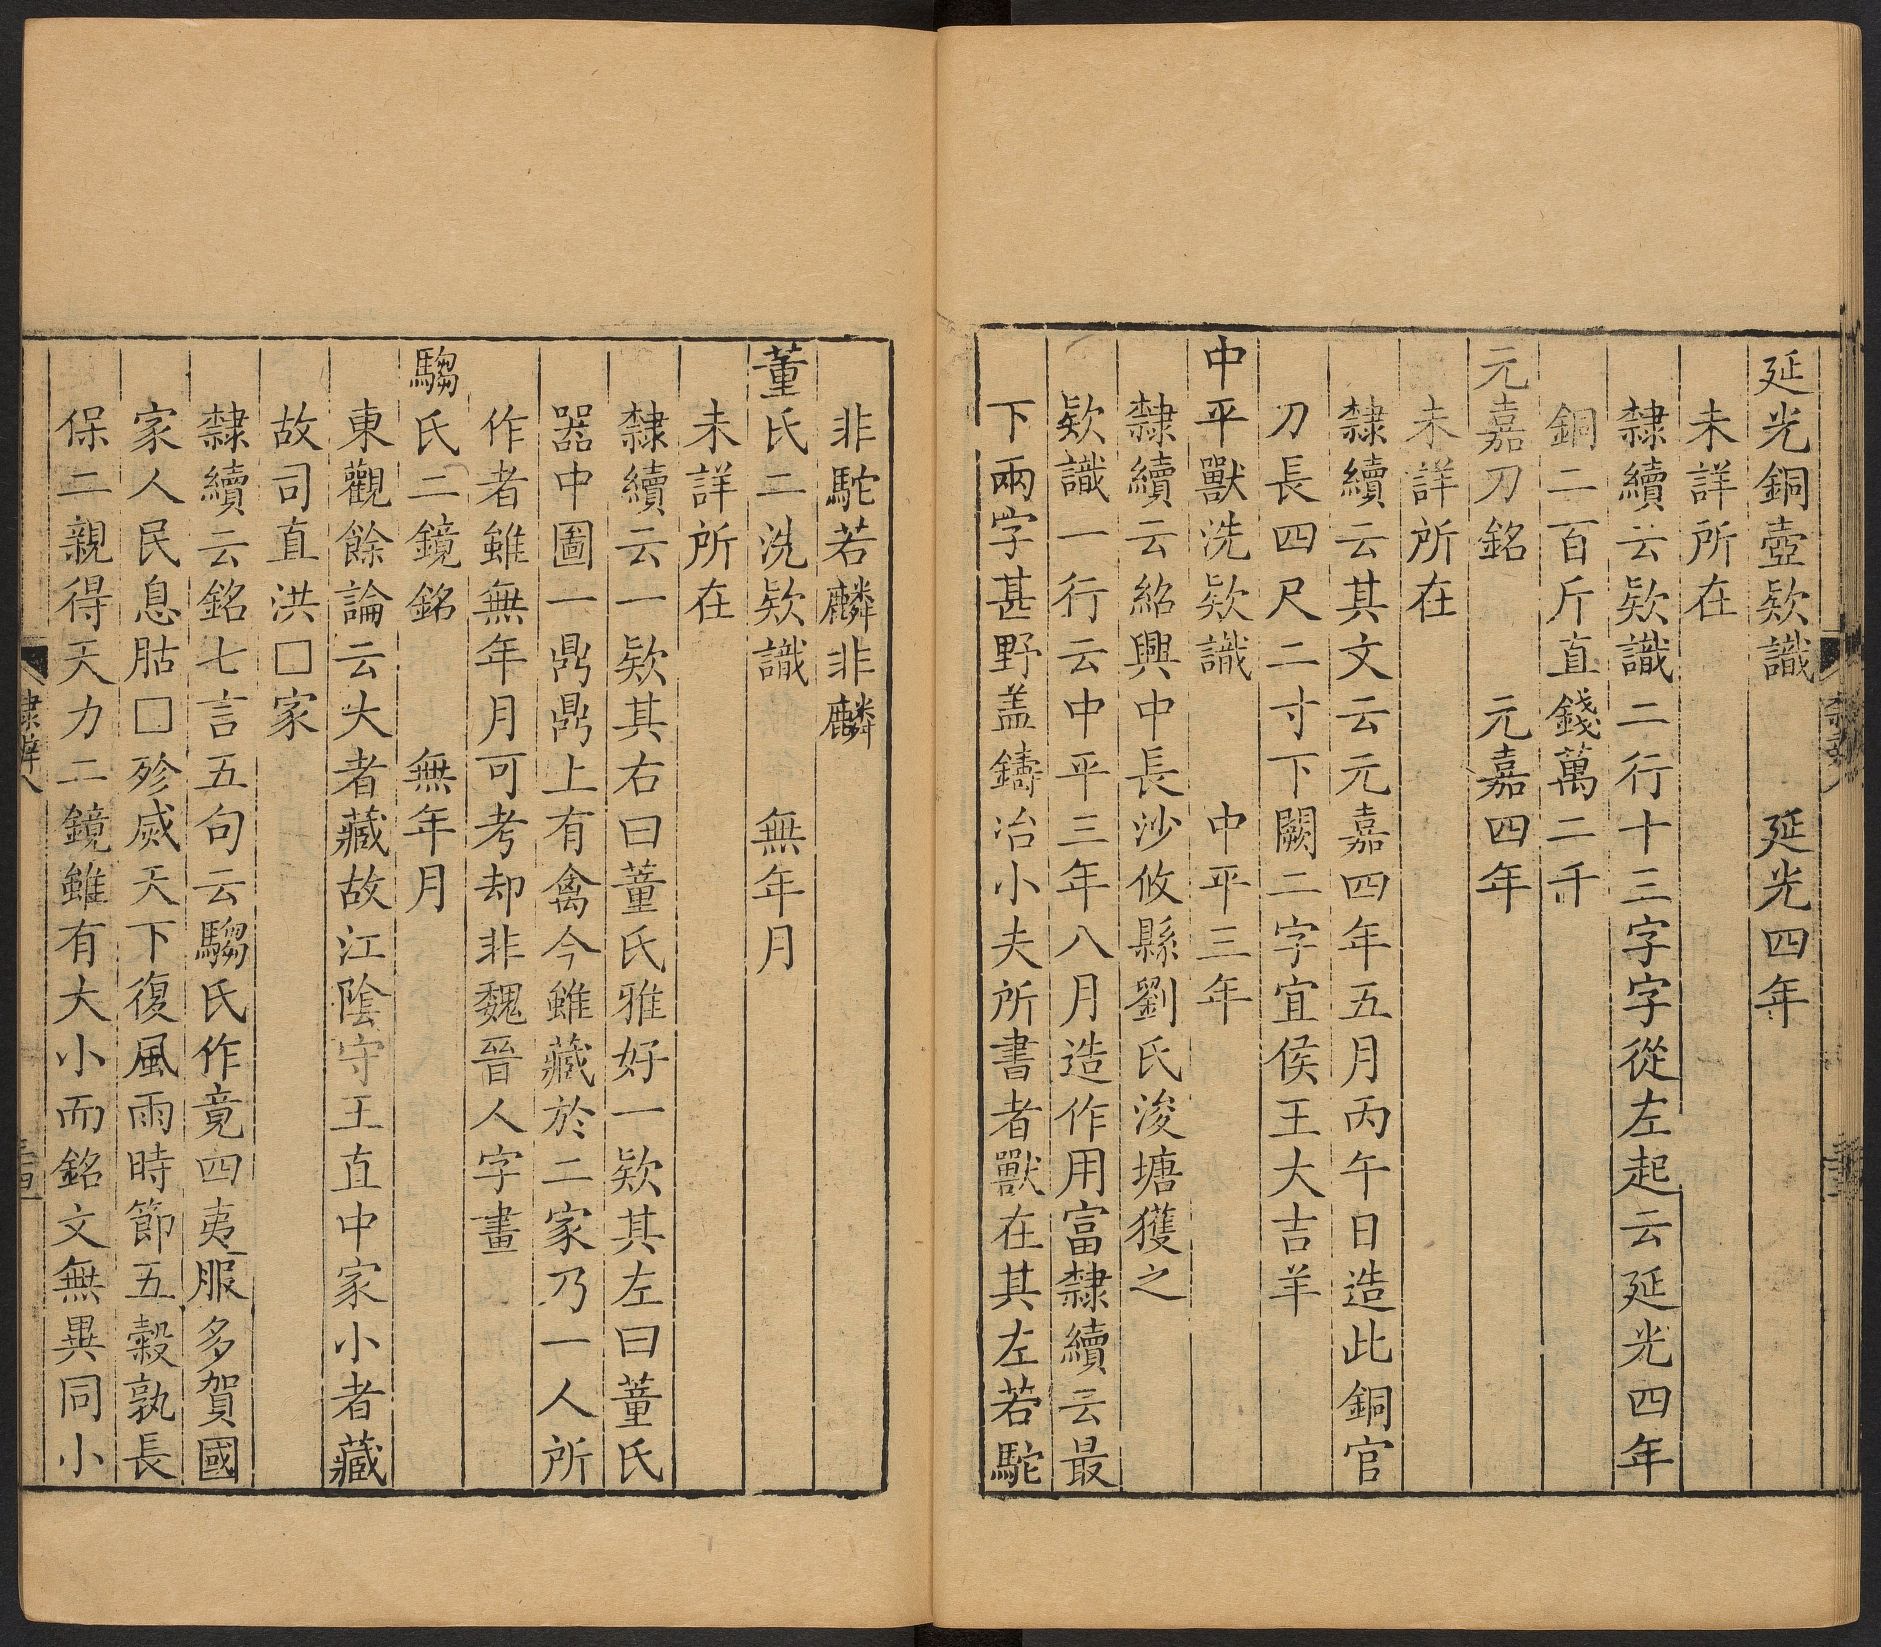 延光銅壺欵識　延光四年
未詳所在
隸續云欵識二行十三字字從左起云延光四年
銅二百斤直錢萬二千
元嘉刀銘　元嘉四年
未詳所在
隸續云其文云元嘉四年五月丙午日造此銅官
刀長四尺二寸下闕二字宜侯王大吉羊
中平獸洗欵識　中平三年
隸續云紹興中長沙攸縣劉氏浚塘獲之
欵識一行云中平三年八月造作用富隸續云最
下兩字甚野盖鑄冶小夫所書者獸在其左若駝
非駝若麟非麟
董氏二洗欵識　無年月
未詳所在
隸續云一欵其右曰董氏雅好一欵其左曰董氏
器中圖一鼎鼎上有禽今雖藏於二家乃一人所
作者雖無年月可考却非魏晉人字畫
騶氏二鏡銘　無年月
東觀餘論云大者藏故江陰守王直中家小者藏
故司直洪□家
隸續云銘七言五句云騶氏作竟四夷服多賀國
家人民息胡□殄烕天下復風雨時節五穀孰長
保二親得天力二鏡雖有大小而銘文無異同小
隸辨八